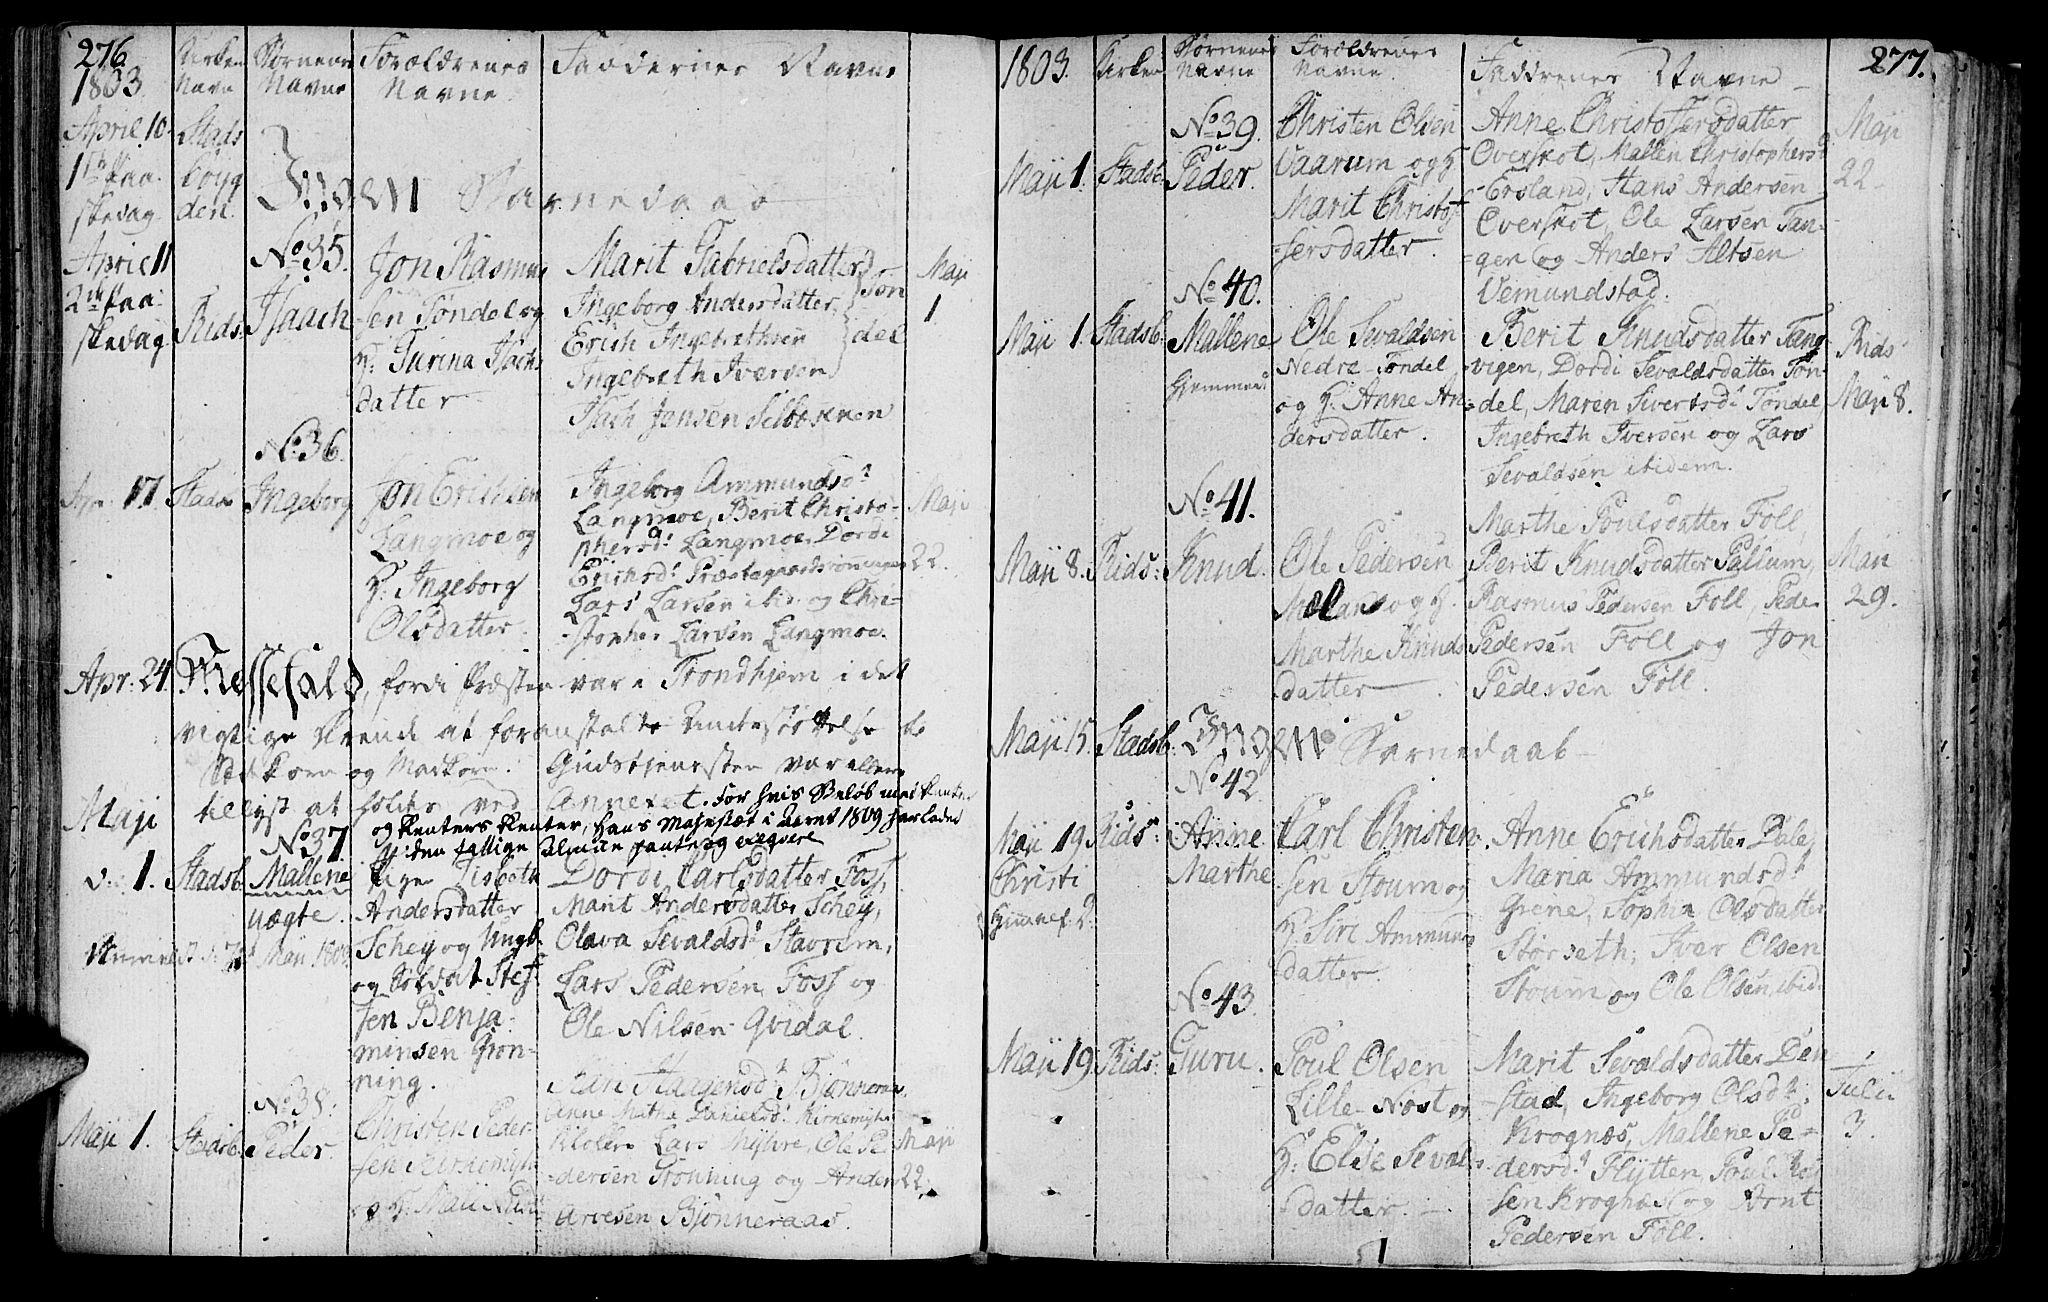 276
1803.
Kirkens Navn
Børnenes Navne
Forældrenes Navne
Faddernes Navne
April 10
1ste Paa
skedag
Stads
boyg
den.
Ingen Barnedaab
April 11
2den Paa
skedag
Rids:
No 35.
Isaach
Jon Rasmus
sen Tøndel og
H: Gurina Isachs
datter
Marit Gabrielsdatter
Ingeborg Andersdatter
Erich Ingebrethsen
Ingebreth Iversen
Isach Jensen Selbekken
Tøn
del
Maji
1
Apr. 17.
No 36.
Ingeborg
Jon Erichsen
Langmoe og
H: Ingeborg
Olsdatter.
Ingeborg Ammundsdr
Langmoe, Berit Christo-
phersdr Langmoe, Dordi
Erichsdr Præstegaardsrønningen
Lars Larsen ibid. og Chri-
stopher Larsen Langmoe.
Maji
22.
Apr: 24.
Messefald, fordi Præsten var i Trondhjem i det
vigtige Ærende at foranstalte Understøttelse
Sædkorn og Madkorn. Gudstjenesten var ellers
tillyst at holdes ved Annexet. For hvis Beløb med Renter
og Renters Renter, Hans Majestæt i Aaret 1809
Maji
d: 1.
Stadsb.
No 37
Mallene
uægte.
Pige Lisbeth
Andersdatter
Schey og Ungk.
og Soldat Stef-
fen Benja-
minsen Grøn-
ning.
Dordi Carlsdatter Foss,
Marit Andersdatter Schey,
Olava Sevaldsdr Stavrum,
Lars Pedersen Foss og
Ole Nilsen Qvidal.
Maji 1.
Stadsb.
No 38:
Peder.
Christen Peder-
sen Kirkemyhr
Bjønneraas,
Anne Danielsdr Kirkemyhr
Klokker Lars Myhre, Ole Pe
dersen Rønning og Anders
Arvesen Bjønneraas.
Maji
22.
1803.
Kirken
Børnenes Navne
Forældrenes Navne.
Faddrenes Navne
277.
Maji 1.
Stadsb.
No 39.
Peder.
Christen Olsen
Vaarum og H
Marit Christof-
fersdatter.
Anne Christoffersdatter
Overskot, Mallen Christophersd
Ersland, Hans Andersen
Overskot, Ole Larsen Tan-
gen og Anders Altsen
Vemundstad.
Maji
22
Maji 1.
Stadsb.
No 40.
Mallene
Hjemmed.
Ole Sevaldsen
Nedre Tøndel
og H. Anne An-
dersdatter.
Berit Knudsdatter Tang-
vigen, Dordi Sevaldsdatter Tøn-
del, Maren Sivertsdr Tøndel,
Ingebreth Iversen og Lars
Sevaldsen ibidem.
Rids
Maji 8.
Maji 8.
Rids:
No 41.
Knud.
Ole Pedersen
Mæland og H.
Marthe Knuds
datter
Marthe Poulsdatter Føll,
Berit Knudsdatter Palium,
Rasmus Pedersen Føll, Peder
Pedersen Føll og Jon
Pedersen Føll.
Maji
29.
Maji 15.
Stadsb.
Ingen Barnedaab
Maji 19.
Christi
Himmelf. D.
Rids:
No 42
Anne
Marthe
Carl Christen-
sen Stoum og
H. Siri Ammunds
datter.
Anne Erichsdatter Dale,
Maria Ammundsdr
Grene, Sophia Olsdatter
Størseth, Iver Olsen
Stoum og Ole Olsen ibid.
Maji 19
Rids:
No 43.
Guru.
Poul Olsen
Lille-Nøst og
H: Else Sevalds
datter.
Marit Sevaldsdatter Den
stad, Ingeborg Olsdr
Krognæs, Mallene Pe-
dersdr Flytten, Poul
sen Krognæs og Arnt
Pedersen Føll.
Julii
3.